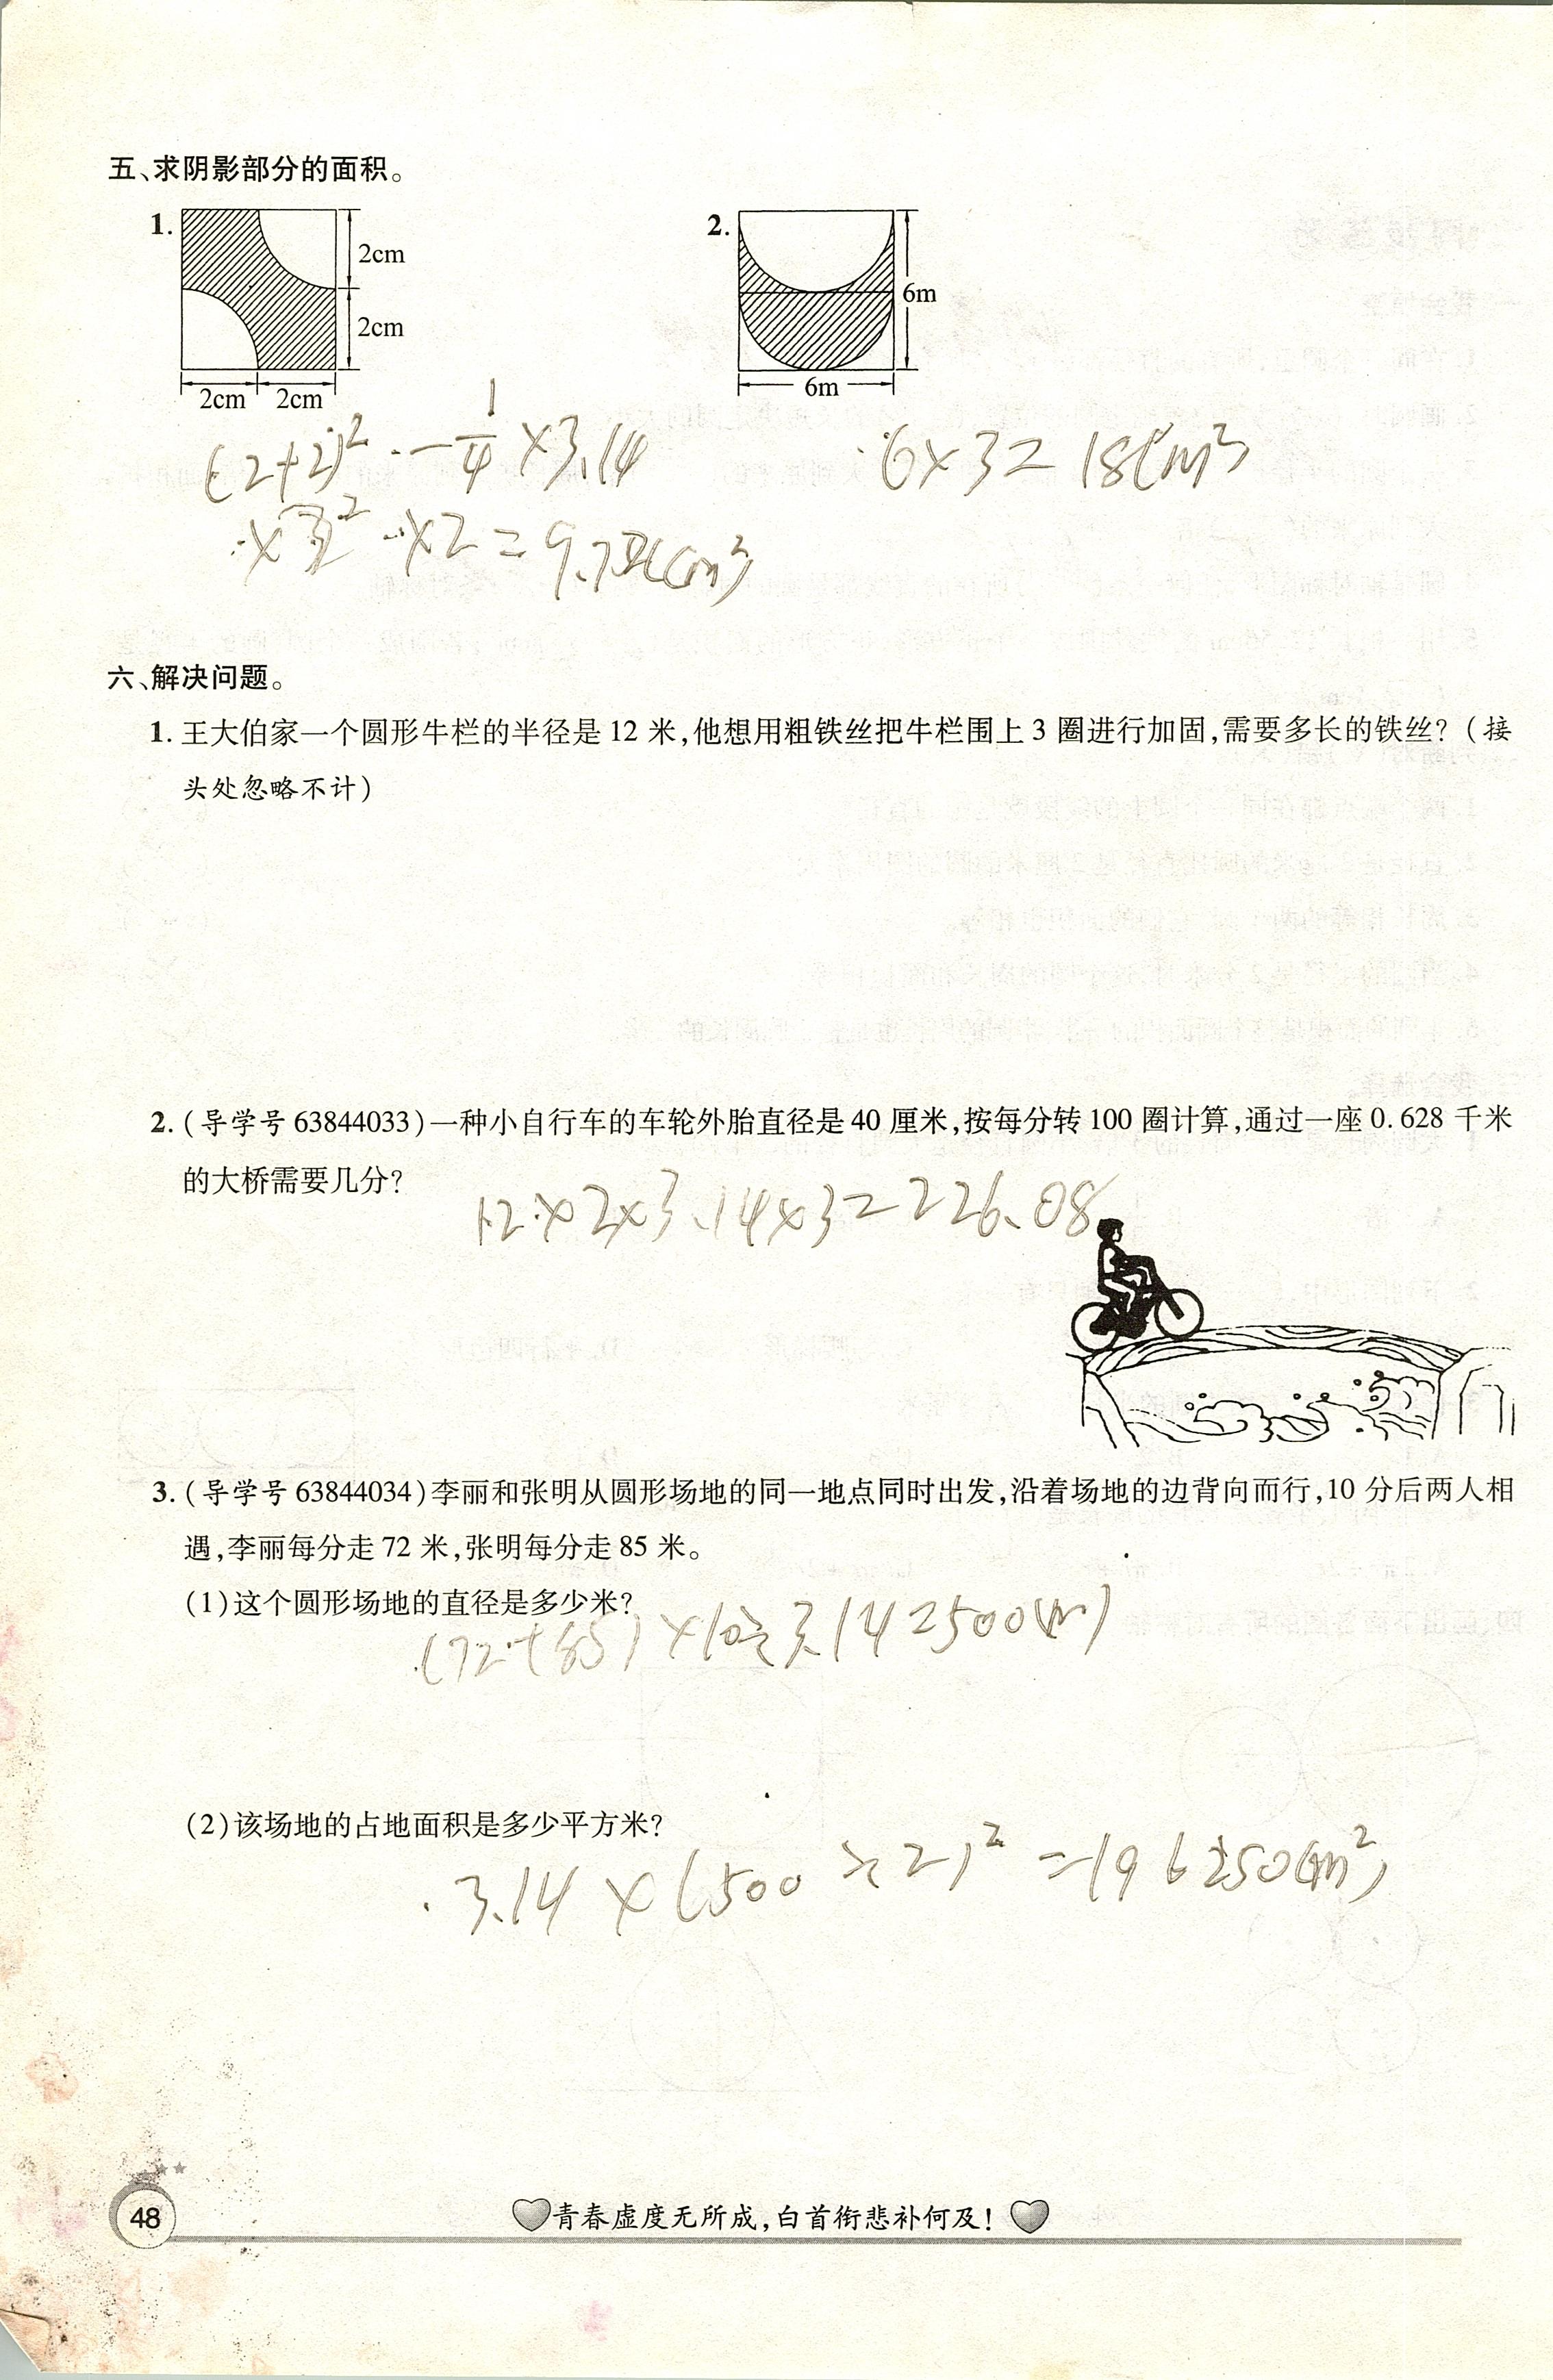 五、求阴影部分的面积。
1.
2cm
2cm
2cm 2cm
2.
6m
6m
(2+2)² - 1/4 ×3.14
×2² ×2=9.72(cm²)
6×3=18(m²)
六、解决问题。
1. 王大伯家一个圆形牛栏的半径是 12 米,他想用粗铁丝把牛栏围上 3 圈进行加固,需要多长的铁丝?(接
头处忽略不计)
2. (导学号 63844033)一种小自行车的车轮外胎直径是 40 厘米,按每分转 100 圈计算,通过一座 0. 628 千米
的大桥需要几分?
12×2×3.14×3=226.08
3. (导学号 63844034)李丽和张明从圆形场地的同一地点同时出发,沿着场地的边背向而行,10 分后两人相
遇,李丽每分走 72 米,张明每分走 85 米。
(1)这个圆形场地的直径是多少米?
(72+85)×10÷3.14=500(m)
(2)该场地的占地面积是多少平方米?
3.14×(500÷2)²=196250(m²)
48
青春虚度无所成,白首衔悲补何及!